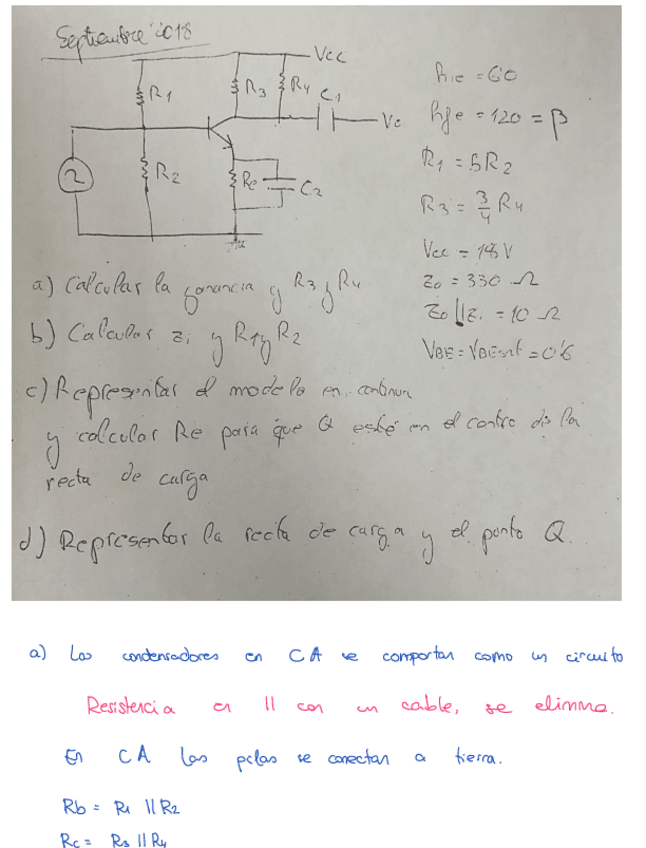 Septiembre 2018
Vcc
R1
R3
R4
C1
Vo
R2
Re
C2
hie = 60
hfe = 120 = β
R1 = 5R2
R3 = 3/4 R4
Vcc = 18 V
Zo = 330 Ω
Zo || Zi = 10 Ω
VBE = VBEsat = 0'6
a) Calcular la ganancia y R3 y R4
b) Calcular Zi y R1 y R2
c) Representar el modelo en continua
y calcular Re para que Q esté en el centro de la
recta de carga
d) Representar la recta de carga y el punto Q.
a) Los condensadores en CA se comportan como un circuito
Resistencia en || con un cable, se elimina.
En CA las pilas se conectan a tierra.
Rb = R1 || R2
Rc = R3 || R4